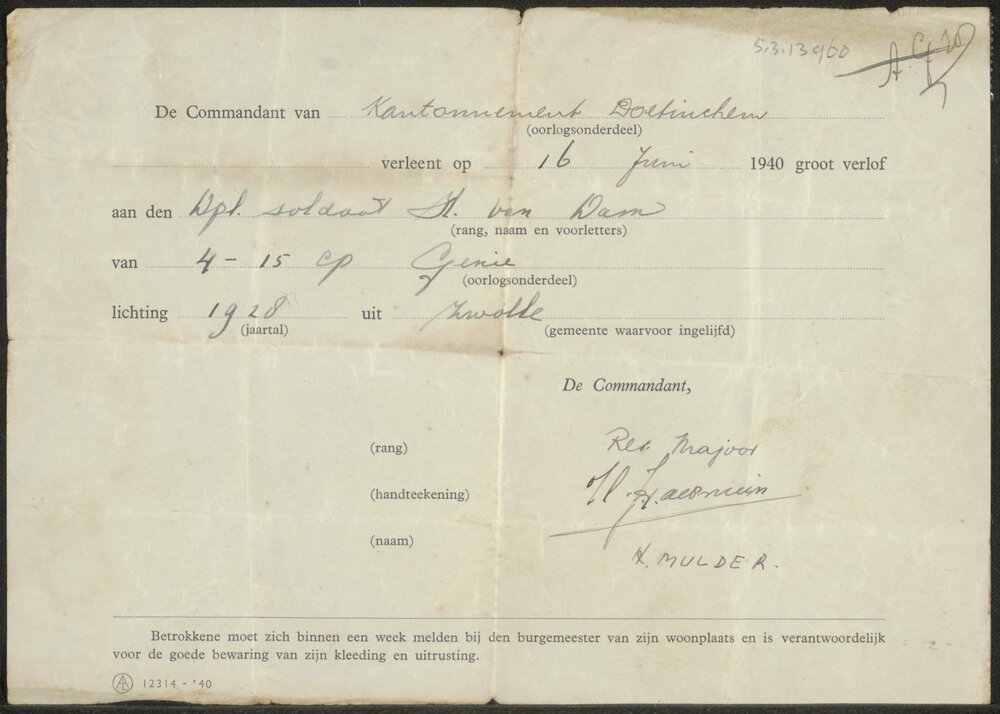 5.3.13960
De Commandant van Kantonnement Doetinchem
(oorlogsonderdeel)
verleent op 16 Juni 1940 groot verlof
aan den Dpl. soldaat H. van Dam
(rang, naam en voorletters)
van 4 - 15 cp Genie
(oorlogsonderdeel)
lichting 1928 uit Zwolle
(jaartal) (gemeente waarvoor ingelijfd)
De Commandant,
(rang) Res. Majoor
(handteekening)
(naam) H. MULDER.
Betrokkene moet zich binnen een week melden bij den burgemeester van zijn woonplaats en is verantwoordelijk
voor de goede bewaring van zijn kleeding en uitrusting.
12314 - '40